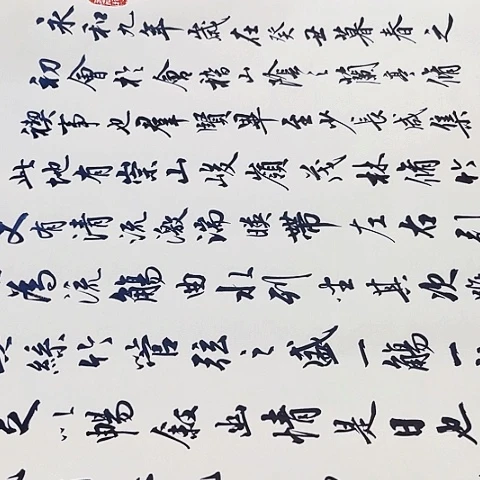 永和九年歲在癸丑暮春之
初會於會稽山陰之蘭亭脩
禊事也羣賢畢至少長咸集
此地有崇山峻嶺茂林脩竹
又有清流激湍暎帶左右引
為流觴曲水列坐其次
絲竹管弦之盛一觴一
足以暢敘幽情是日也